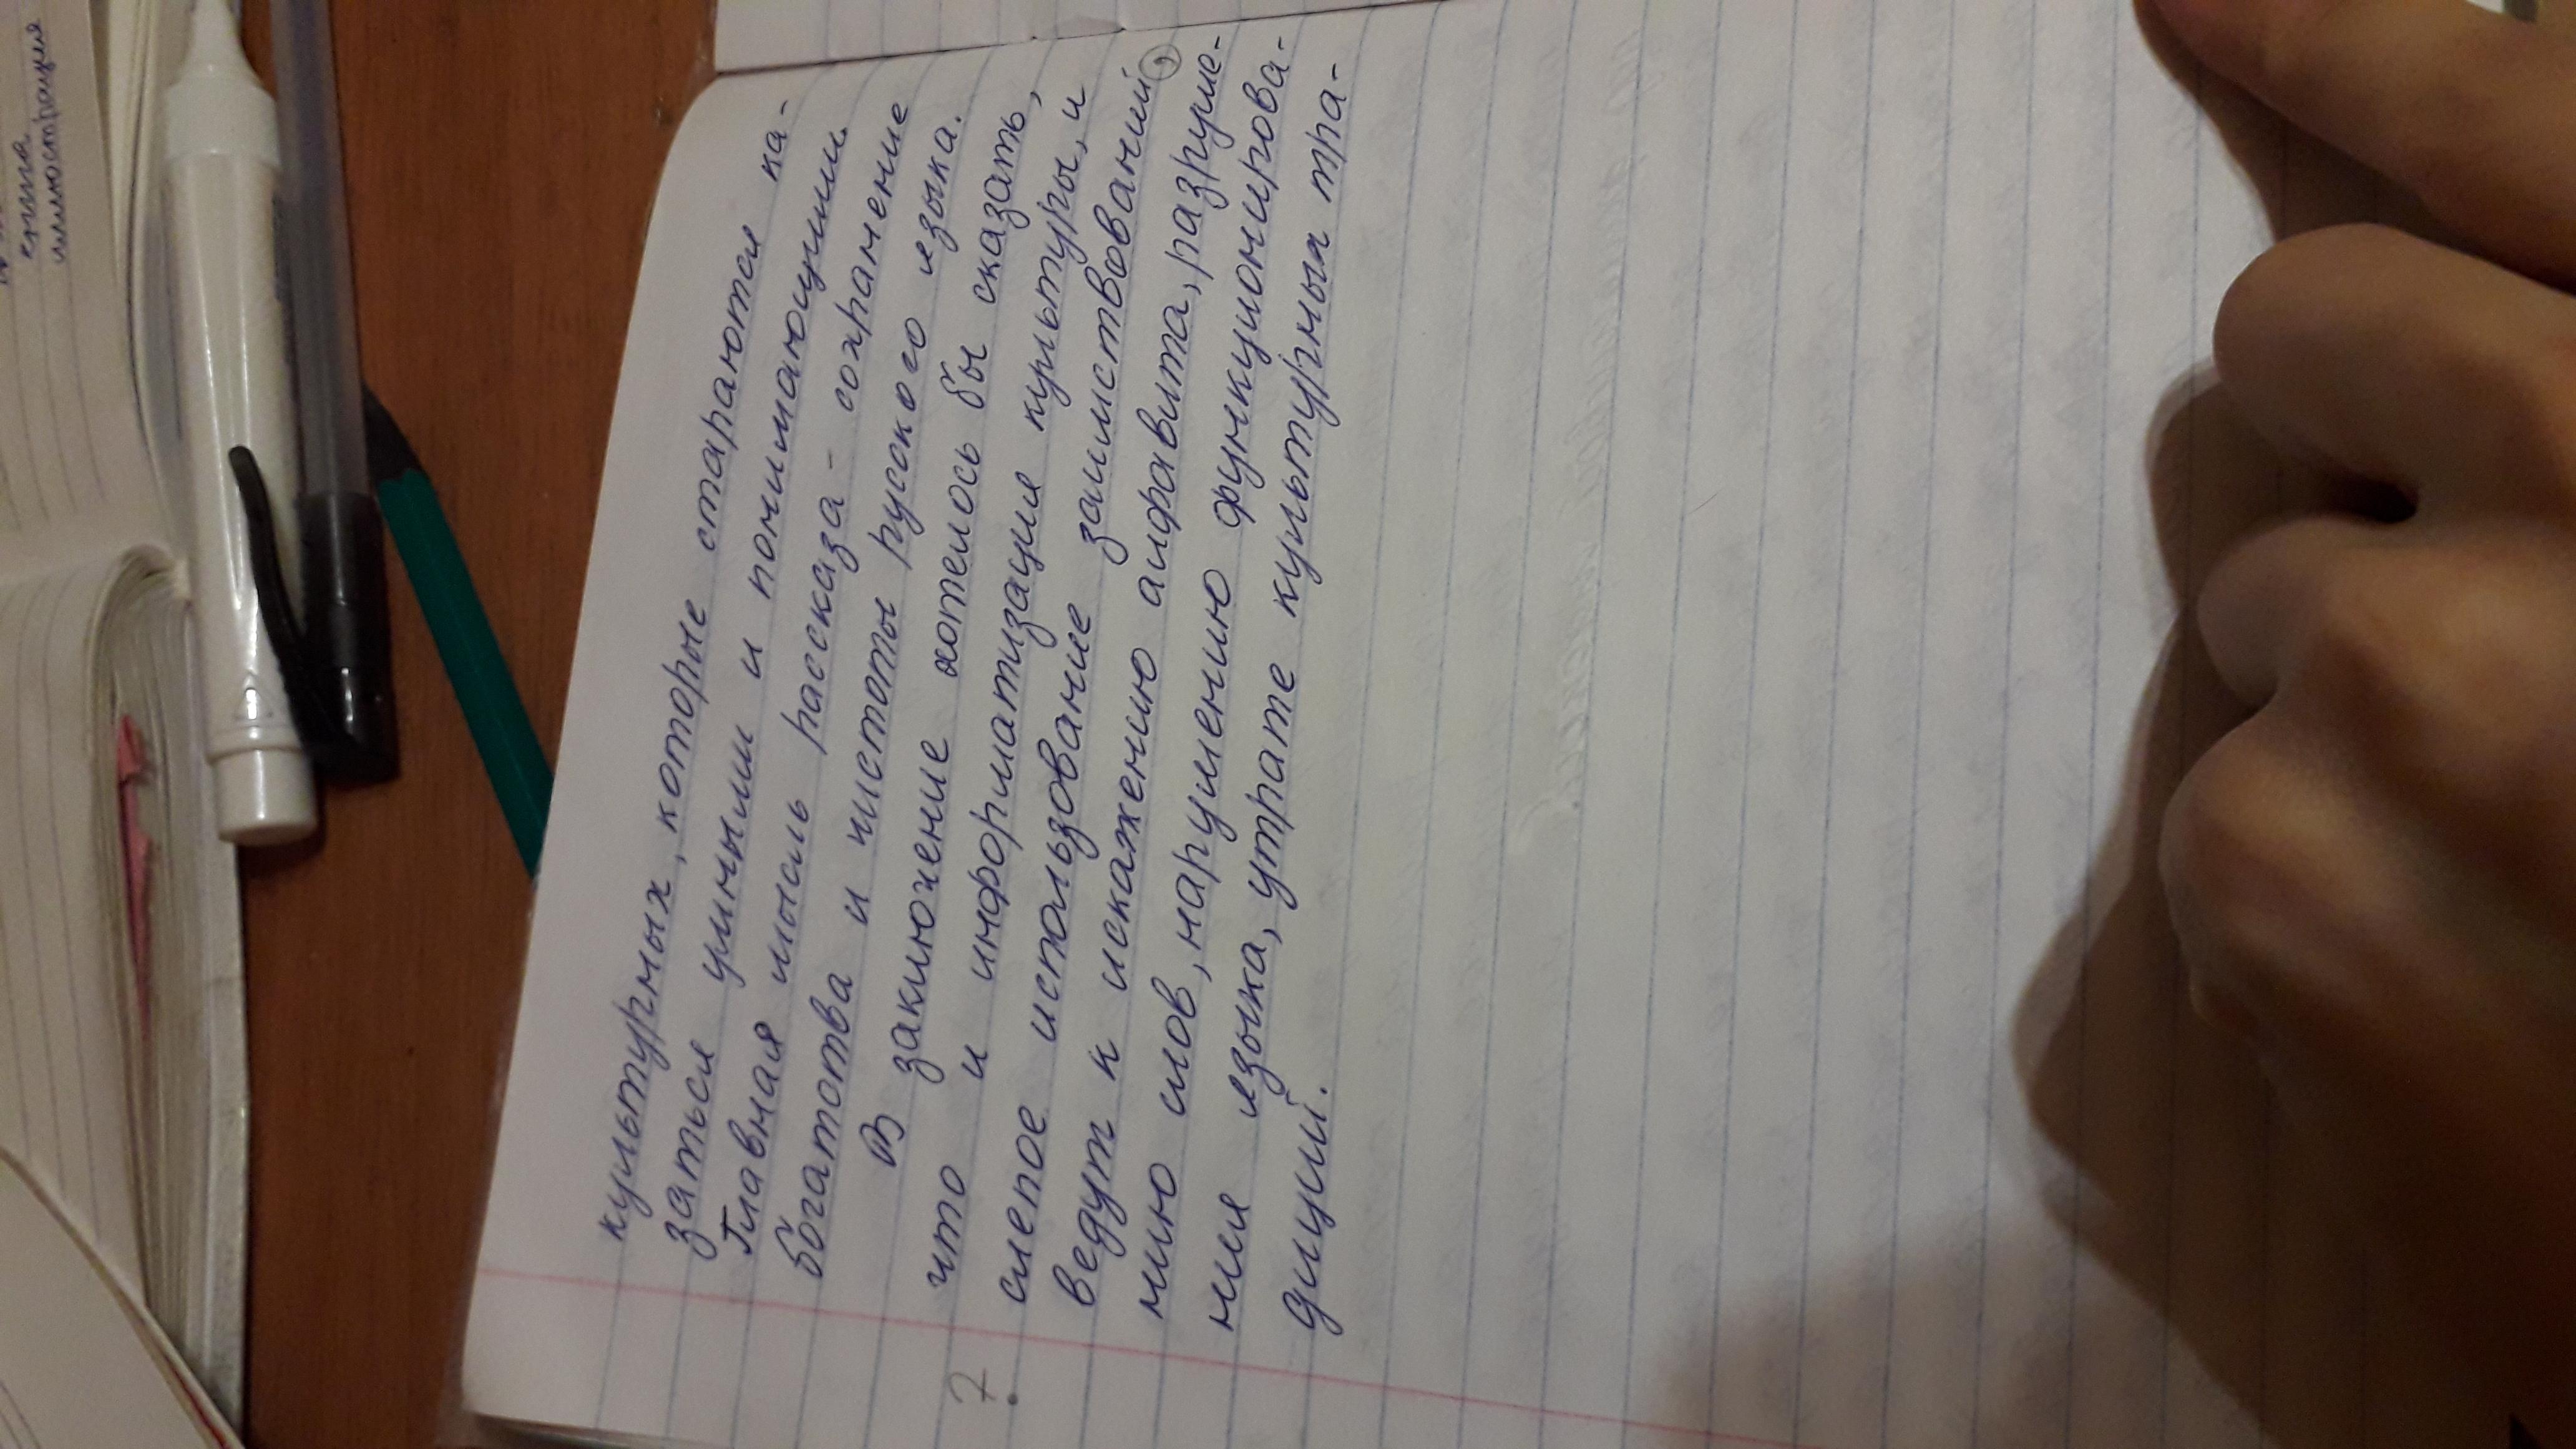 культурных, которые стараются ка-
заться умными и понимающими.
Главная мысль рассказа - сохранение
богатства и чистоты руского языка.
В заключение хотелось бы сказать,
что и информатизация культуры, и
слепое использование заимствований,
ведут к искажению алфавита, разруше-
нию слов, нарушению функционирова-
ния языка, утрате культурных тра-
диций.
?
иллюстрация